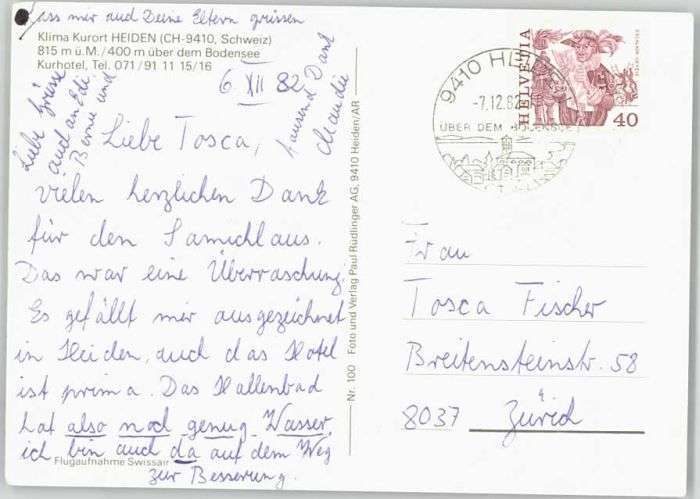 Lass mer auch Deine Eltern grüssen
Klima Kurort HEIDEN (CH-9410, Schweiz)
815 m ü.M./400 m über dem Bodensee
Kurhotel, Tel. 071/91 11 15/16
6. XII 82
tausend Dank
Claudie
Liebe Grüsse
auch an Edi,
Berne und
Liebe Tosca,
vielen herzlichen Dank
für den Samichlaus.
Das war eine Überraschung.
Es gefällt mer ausgezeichnet
in Heiden, auch das Hotel
ist prima. Das Hallenbad
hat also noch genug Wasser,
ich bin auch da auf dem Weg
zur Besserung.
Flugaufnahme Swissair
Nr. 100 Foto und Verlag Paul Rüdlinger AG, 9410 Heiden/AR
9410 HEIDEN
-7.12.82
ÜBER DEM BODENSEE
HELVETIA
40
Frau
Tosca Fischer
Breitensteinstr. 58
8037 Zürich